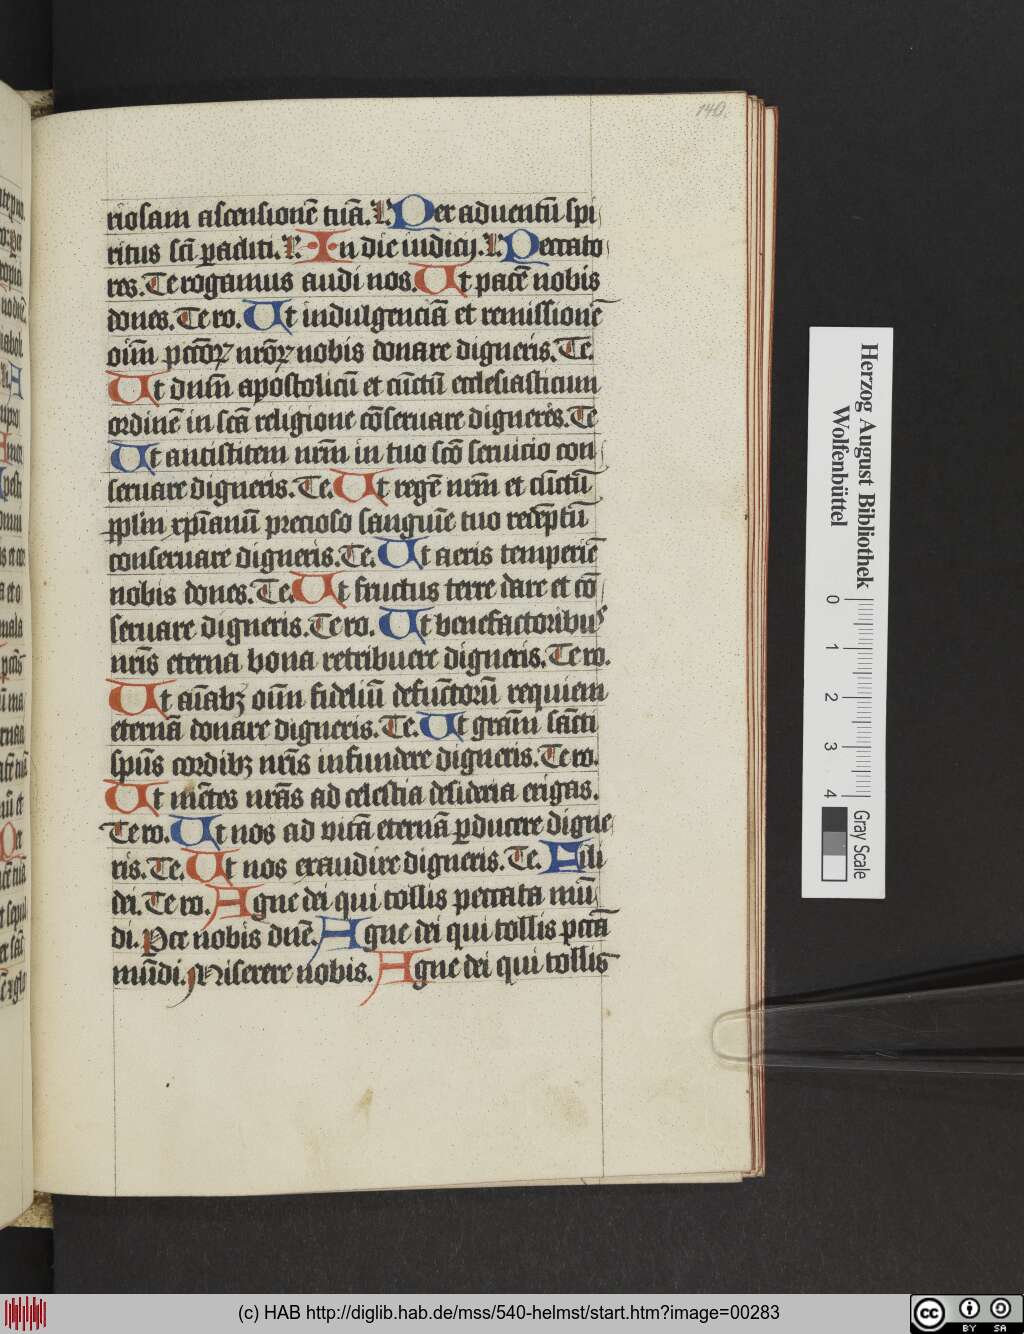 140.
riosam ascensionē tuā. L. Per aduentū spi
ritus scī paracliti. L. In die iudicij. L. Peccato
res. Te rogamus audi nos. Ut pacē nobis
dones. Te ro. Ut indulgenciā et remissionē
oīm pctōꝝ nrōꝝ nobis donare digneris. Te.
Ut dn̄m apostolicū et cūctū ecclesiasticum
ordinē in scā religione cōseruare digneris. Te
Ut antistitem nrm̄ in tuo scō seruicio con
seruare digneris. Te. Ut regē nrm̄ et cūctū
pplm̄ xpīanū precioso sanguīe tuo redēptū
conseruare digneris. Te. Ut aeris temperiē
nobis dones. Te. Ut fructus terre dare et cō
seruare digneris. Te ro. Ut benefactoribuꝰ
nrīs eterna bona retribuere digneris. Te ro.
Ut aīabꝫ oīm fideliū defūctorū requiem
eternā donare digneris. Te. Ut grām sācti
spūs cordibꝫ nrīs infundere digneris. Te ro.
Ut mētes nrās ad celestia desideria erigas.
Te ro. Ut nos ad vitā eternā ꝑducere digne
ris. Te. Ut nos exaudire digneris. Te. Fili
dei. Te ro. Agne dei qui tollis peccata mū
di. Pce nobis dnē. Agne dei qui tollis pctā
mūdi. Miserere nobis. Agne dei qui tollis
Herzog August Bibliothek
Wolfenbüttel
0 1 2 3 4
Gray Scale
(c) HAB http://diglib.hab.de/mss/540-helmst/start.htm?image=00283
cc BY SA